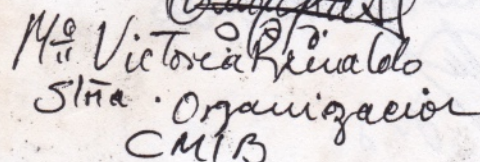 Mª Victoria Reinaldo
Stria. Organizacion
CMTB